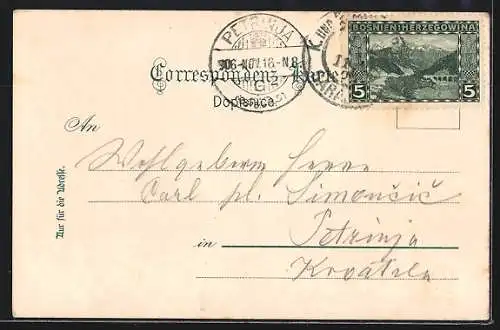 PETRINJA
906 NOV 18 - N 8
BOSNIEN HERZEGOWINA
5 5
Correspondenz-Karte
Dopisnica.
An
Wohlgeboren Herrn
Carl pl. Simončić
in Petrinja
Kroatien
Nur für die Adresse.